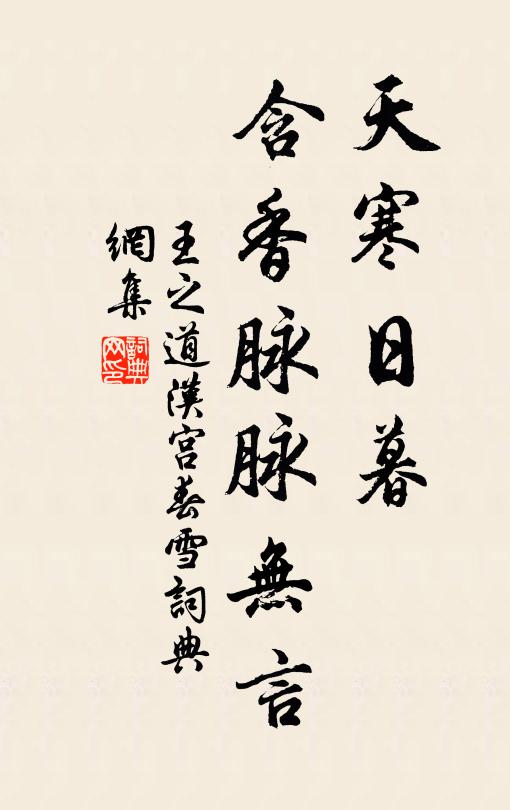 天寒日暮
含香脉脉無言
王之道漢宮春雪詞典
網集
詞典
网印